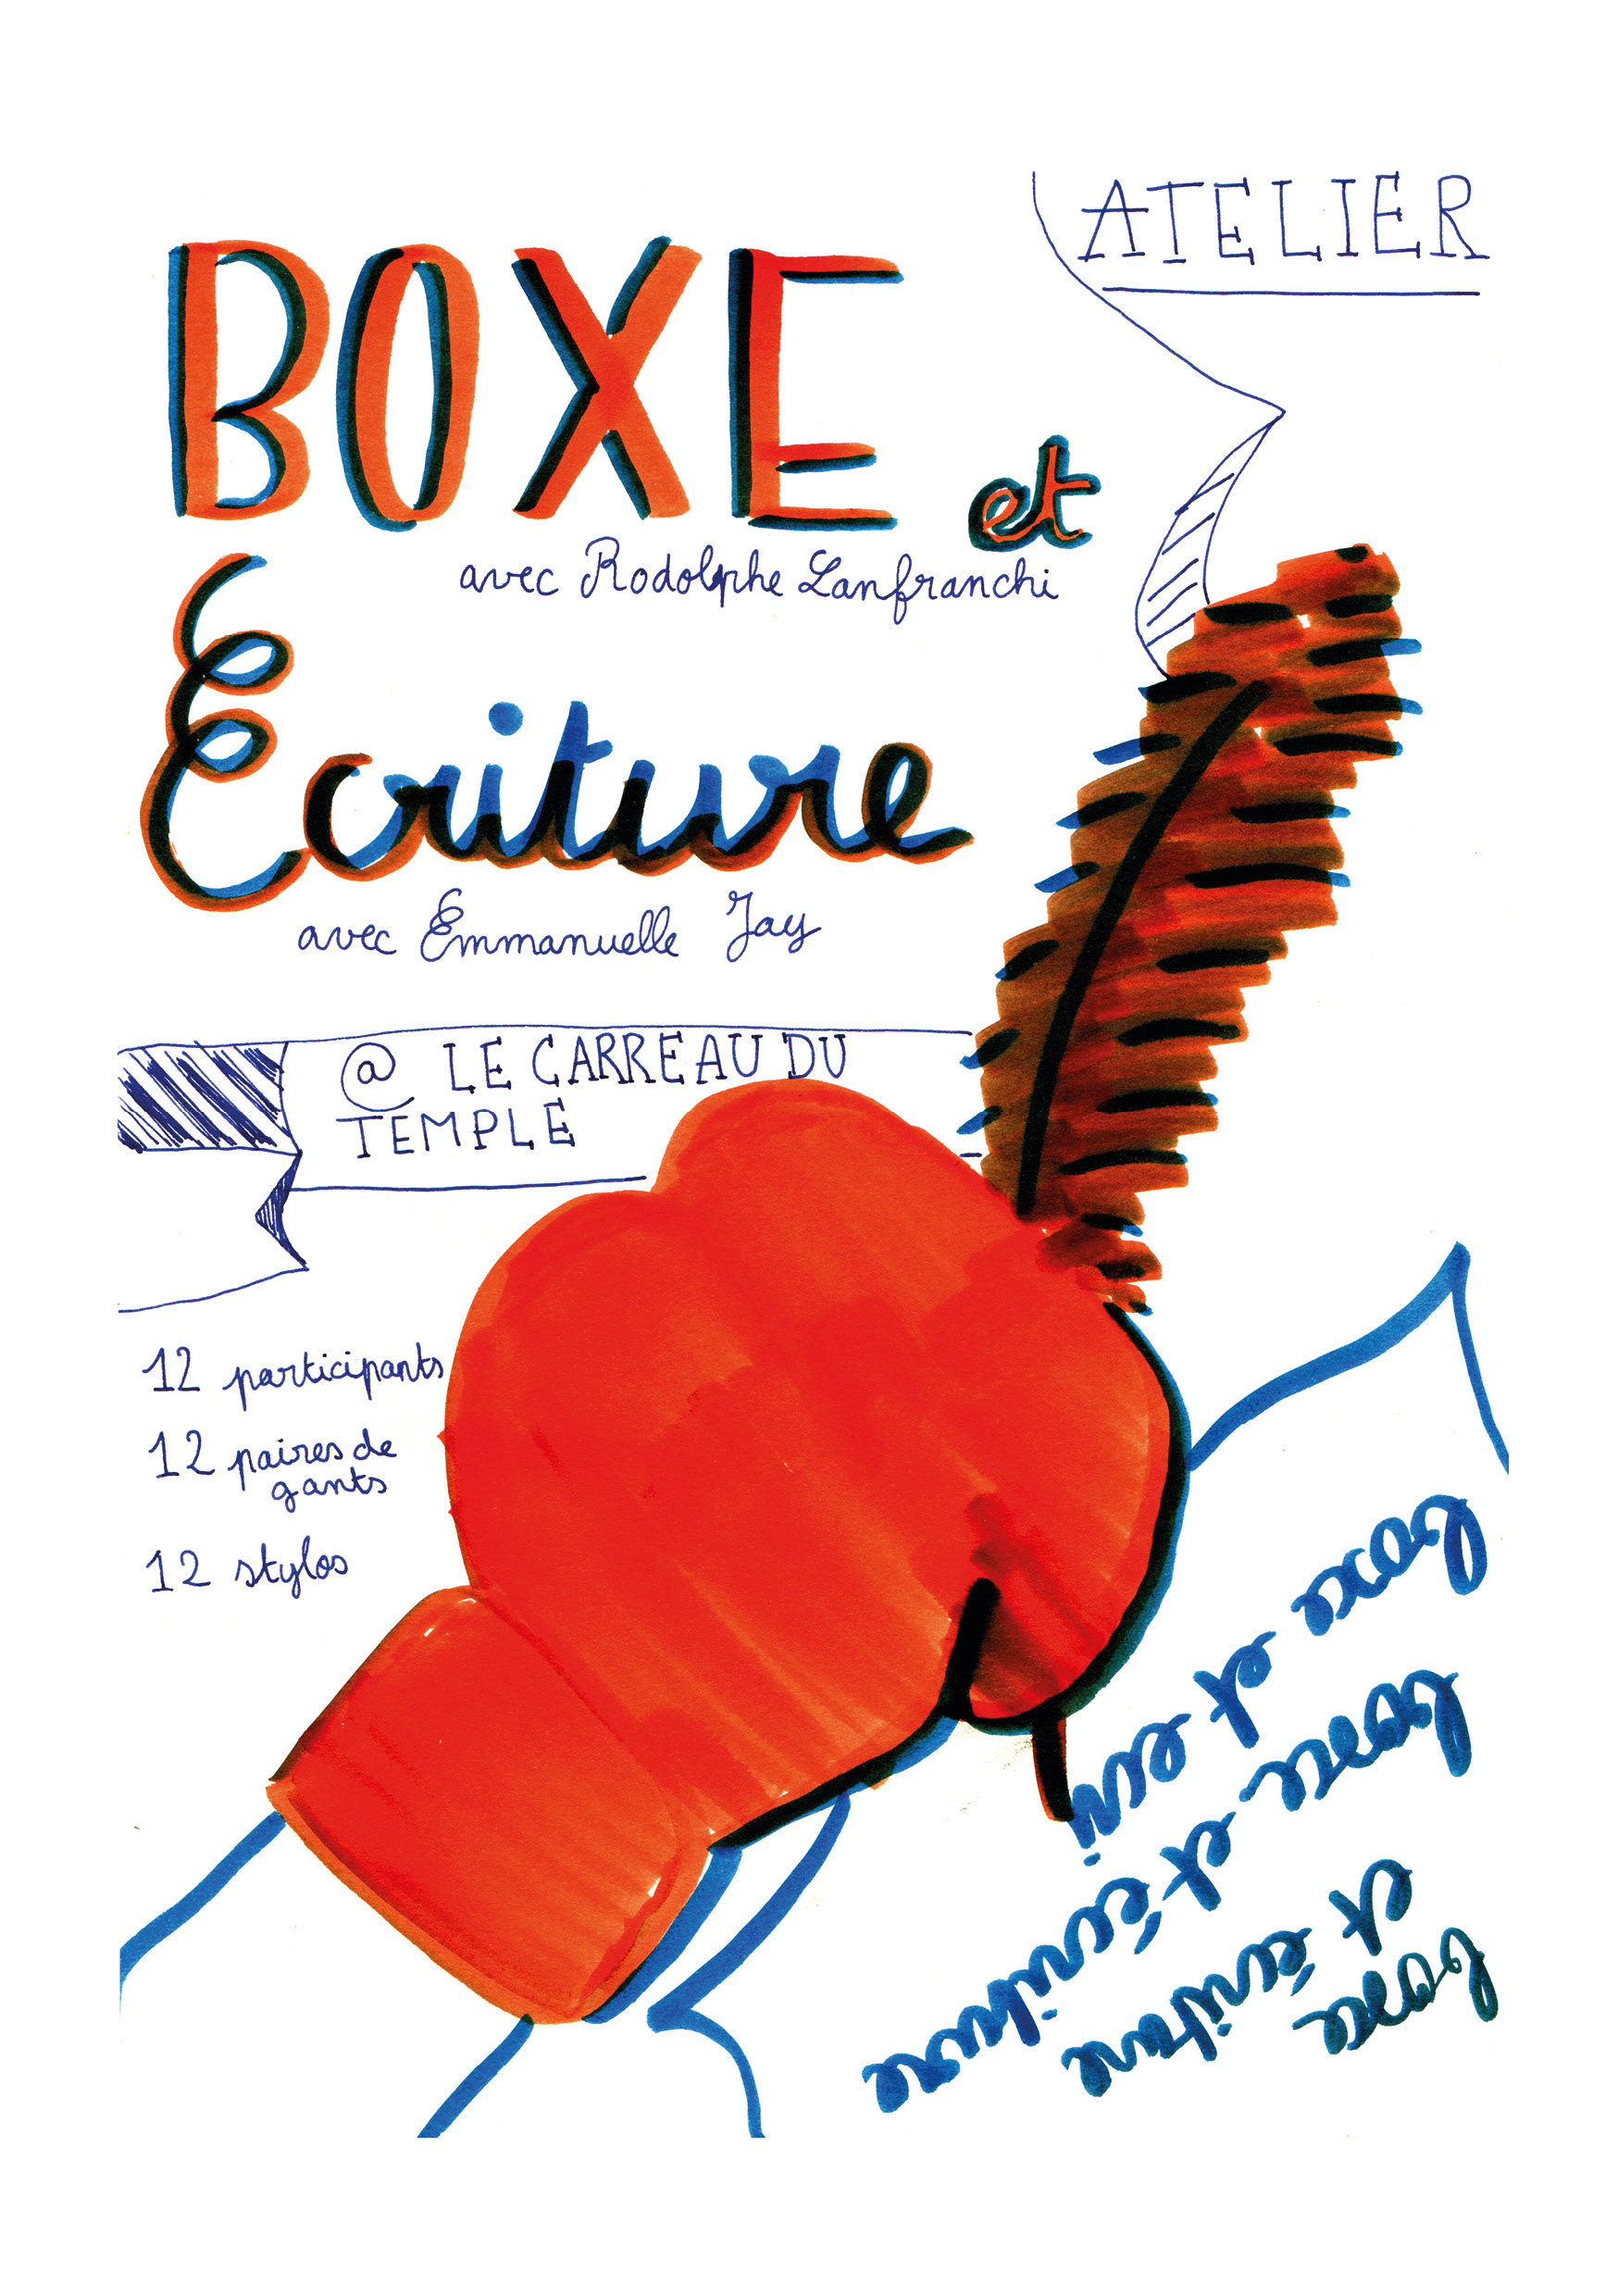 ATELIER
BOXE et
avec Rodolphe Lanfranchi
Ecriture
avec Emmanuelle Jay
@ LE CARREAU DU
TEMPLE
12 participants
12 paires de
gants
12 stylos
boxe et écri
boxe et écriture
boxe
et écriture